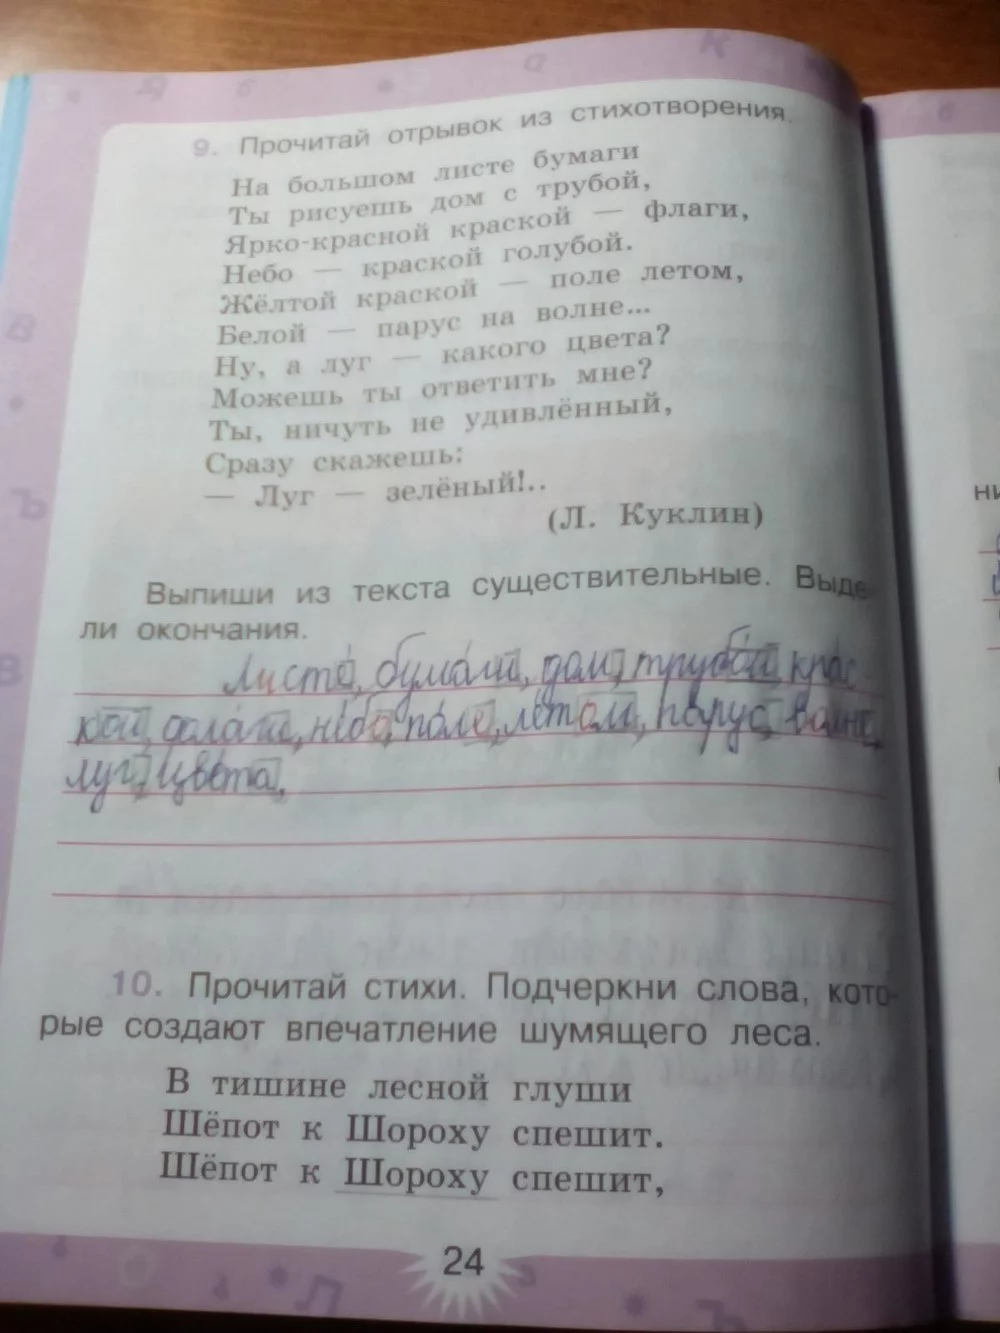 9. Прочитай отрывок из стихотворения.
На большом листе бумаги
Ты рисуешь дом с трубой,
Ярко-красной краской — флаги,
Небо — краской голубой.
Жёлтой краской — поле летом,
Белой — парус на волне...
Ну, а луг — какого цвета?
Можешь ты ответить мне?
Ты, ничуть не удивлённый,
Сразу скажешь:
— Луг — зелёный!..
(Л. Куклин)
Выпиши из текста существительные. Выде-
ли окончания.
Листе, бумаги, дом, трубой, крас-
кой, небо, поле, летом, парус, волне,
луг, цвета,
10. Прочитай стихи. Подчеркни слова, кото-
рые создают впечатление шумящего леса.
В тишине лесной глуши
Шёпот к Шороху спешит.
Шёпот к Шороху спешит,
24
ни